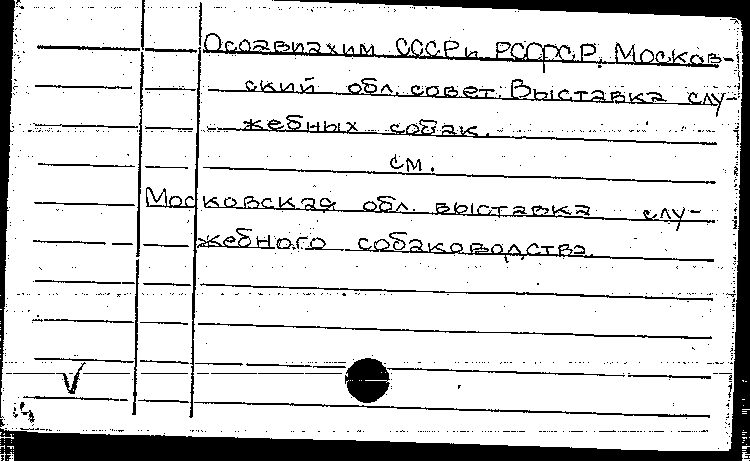 Осоавиахим СССР и РСФСР. Москов-
ский обл. совет. Выставка слу-
жебных собак.
см.
Московская обл. выставка слу-
жебного собаководства.